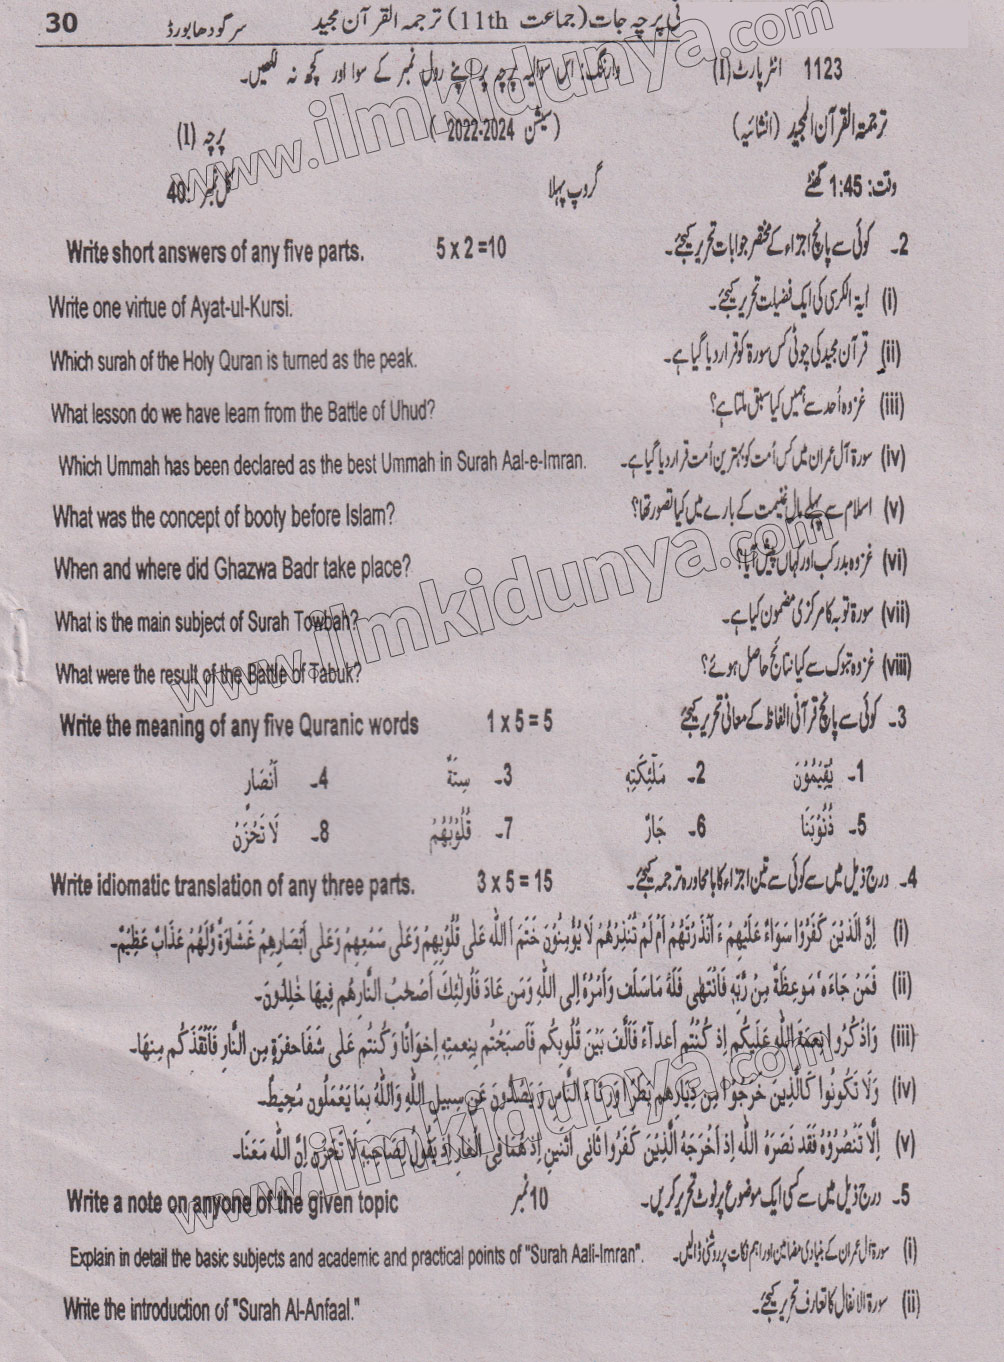 نی پرچہ جات (جماعت 11th) ترجمہ القرآن مجید سرگودھا بورڈ 30
1123 انٹر پارٹ (I) وارننگ: اس سوالیہ پرچہ پر اپنے رول نمبر کے سوا اور کچھ نہ لکھیں۔
ترجمۃ القرآن المجید (انشائیہ) (سیشن 2022-2024) پرچہ (I)
وقت: 1:45 گھنٹے گروپ پہلا کل نمبر: 40
2۔ کوئی سے پانچ اجزاء کے مختصر جوابات تحریر کیجئے۔ 5 x 2 =10 Write short answers of any five parts.
(i) آیۃ الکرسی کی ایک فضیلت تحریر کیجئے۔ Write one virtue of Ayat-ul-Kursi.
(ii) قرآن مجید کی چوٹی کس سورۃ کو قرار دیا گیا ہے۔ Which surah of the Holy Quran is turned as the peak.
(iii) غزوہ اُحد سے ہمیں کیا سبق ملتا ہے؟ What lesson do we have learn from the Battle of Uhud?
(iv) سورۃ آل عمران میں کس اُمت کو بہترین اُمت قرار دیا گیا ہے۔ Which Ummah has been declared as the best Ummah in Surah Aal-e-Imran.
(v) اسلام سے پہلے مال غنیمت کے بارے میں کیا تصور تھا؟ What was the concept of booty before Islam?
(vi) غزوہ بدر کب اور کہاں پیش آیا؟ When and where did Ghazwa Badr take place?
(vii) سورۃ توبہ کا مرکزی مضمون کیا ہے۔ What is the main subject of Surah Towbah?
(viii) غزوہ تبوک سے کیا نتائج حاصل ہوئے؟ What were the result of the Battle of Tabuk?
3۔ کوئی سے پانچ قرآنی الفاظ کے معانی تحریر کیجئے 1 x 5 = 5 Write the meaning of any five Quranic words
1۔ يُقِيْمُوْنَ 2۔ مَلٰٓئِكَتِهٖ 3۔ سِنَةٌ 4۔ اَنْصَارٍ
5۔ ذُنُوْبَنَا 6۔ جَارٌ 7۔ قُلُوْبُهُمْ 8۔ لَا تَحْزَنْ
4۔ درج ذیل میں سے کوئی سے تین اجزاء کا بامحاورہ ترجمہ کیجئے۔ 3 x 5 = 15 Write idiomatic translation of any three parts.
(i) اِنَّ الَّذِيْنَ كَفَرُوْا سَوَآءٌ عَلَيْهِمْ ءَ اَنْذَرْتَهُمْ اَمْ لَمْ تُنْذِرْهُمْ لَا يُؤْمِنُوْنَ خَتَمَ اللّٰهُ عَلٰى قُلُوْبِهِمْ وَعَلٰى سَمْعِهِمْ وَعَلٰى اَبْصَارِهِمْ غِشَاوَةٌ وَّلَهُمْ عَذَابٌ عَظِيْمٌ۔
(ii) فَمَنْ جَآءَهٗ مَوْعِظَةٌ مِنْ رَّبِّهٖ فَانْتَهٰى فَلَهٗ مَا سَلَفَ وَاَمْرُهٗ اِلَى اللّٰهِ وَمَنْ عَادَ فَاُولٰٓئِكَ اَصْحٰبُ النَّارِ هُمْ فِيْهَا خٰلِدُوْنَ۔
(iii) وَاذْكُرُوْا نِعْمَةَ اللّٰهِ عَلَيْكُمْ اِذْ كُنْتُمْ اَعْدَآءً فَاَلَّفَ بَيْنَ قُلُوْبِكُمْ فَاَصْبَحْتُمْ بِنِعْمَتِهٖ اِخْوَانًا وَكُنْتُمْ عَلٰى شَفَا حُفْرَةٍ مِنَ النَّارِ فَاَنْقَذَكُمْ مِنْهَا۔
(iv) وَلَا تَكُوْنُوْا كَالَّذِيْنَ خَرَجُوْا مِنْ دِيَارِهِمْ بَطَرًا وَّرِئَآءَ النَّاسِ وَيَصُدُّوْنَ عَنْ سَبِيْلِ اللّٰهِ وَاللّٰهُ بِمَا يَعْمَلُوْنَ مُحِيْطٌ۔
(v) اِلَّا تَنْصُرُوْهُ فَقَدْ نَصَرَهُ اللّٰهُ اِذْ اَخْرَجَهُ الَّذِيْنَ كَفَرُوْا ثَانِىَ اثْنَيْنِ اِذْ هُمَا فِى الْغَارِ اِذْ يَقُوْلُ لِصَاحِبِهٖ لَا تَحْزَنْ اِنَّ اللّٰهَ مَعَنَا۔
5۔ درج ذیل میں سے کسی ایک موضوع پر نوٹ تحریر کریں۔ 10 نمبر Write a note on anyone of the given topic
(i) سورۃ آل عمران کے بنیادی مضامین اور اہم نکات پر روشنی ڈالیں۔ Explain in detail the basic subjects and academic and practical points of "Surah Aali-Imran".
(ii) سورۃ الانفال کا تعارف تحریر کیجئے۔ Write the introduction of "Surah Al-Anfaal."
www.ilmkidunya.com
www.ilmkidunya.com
www.ilmkidunya.com